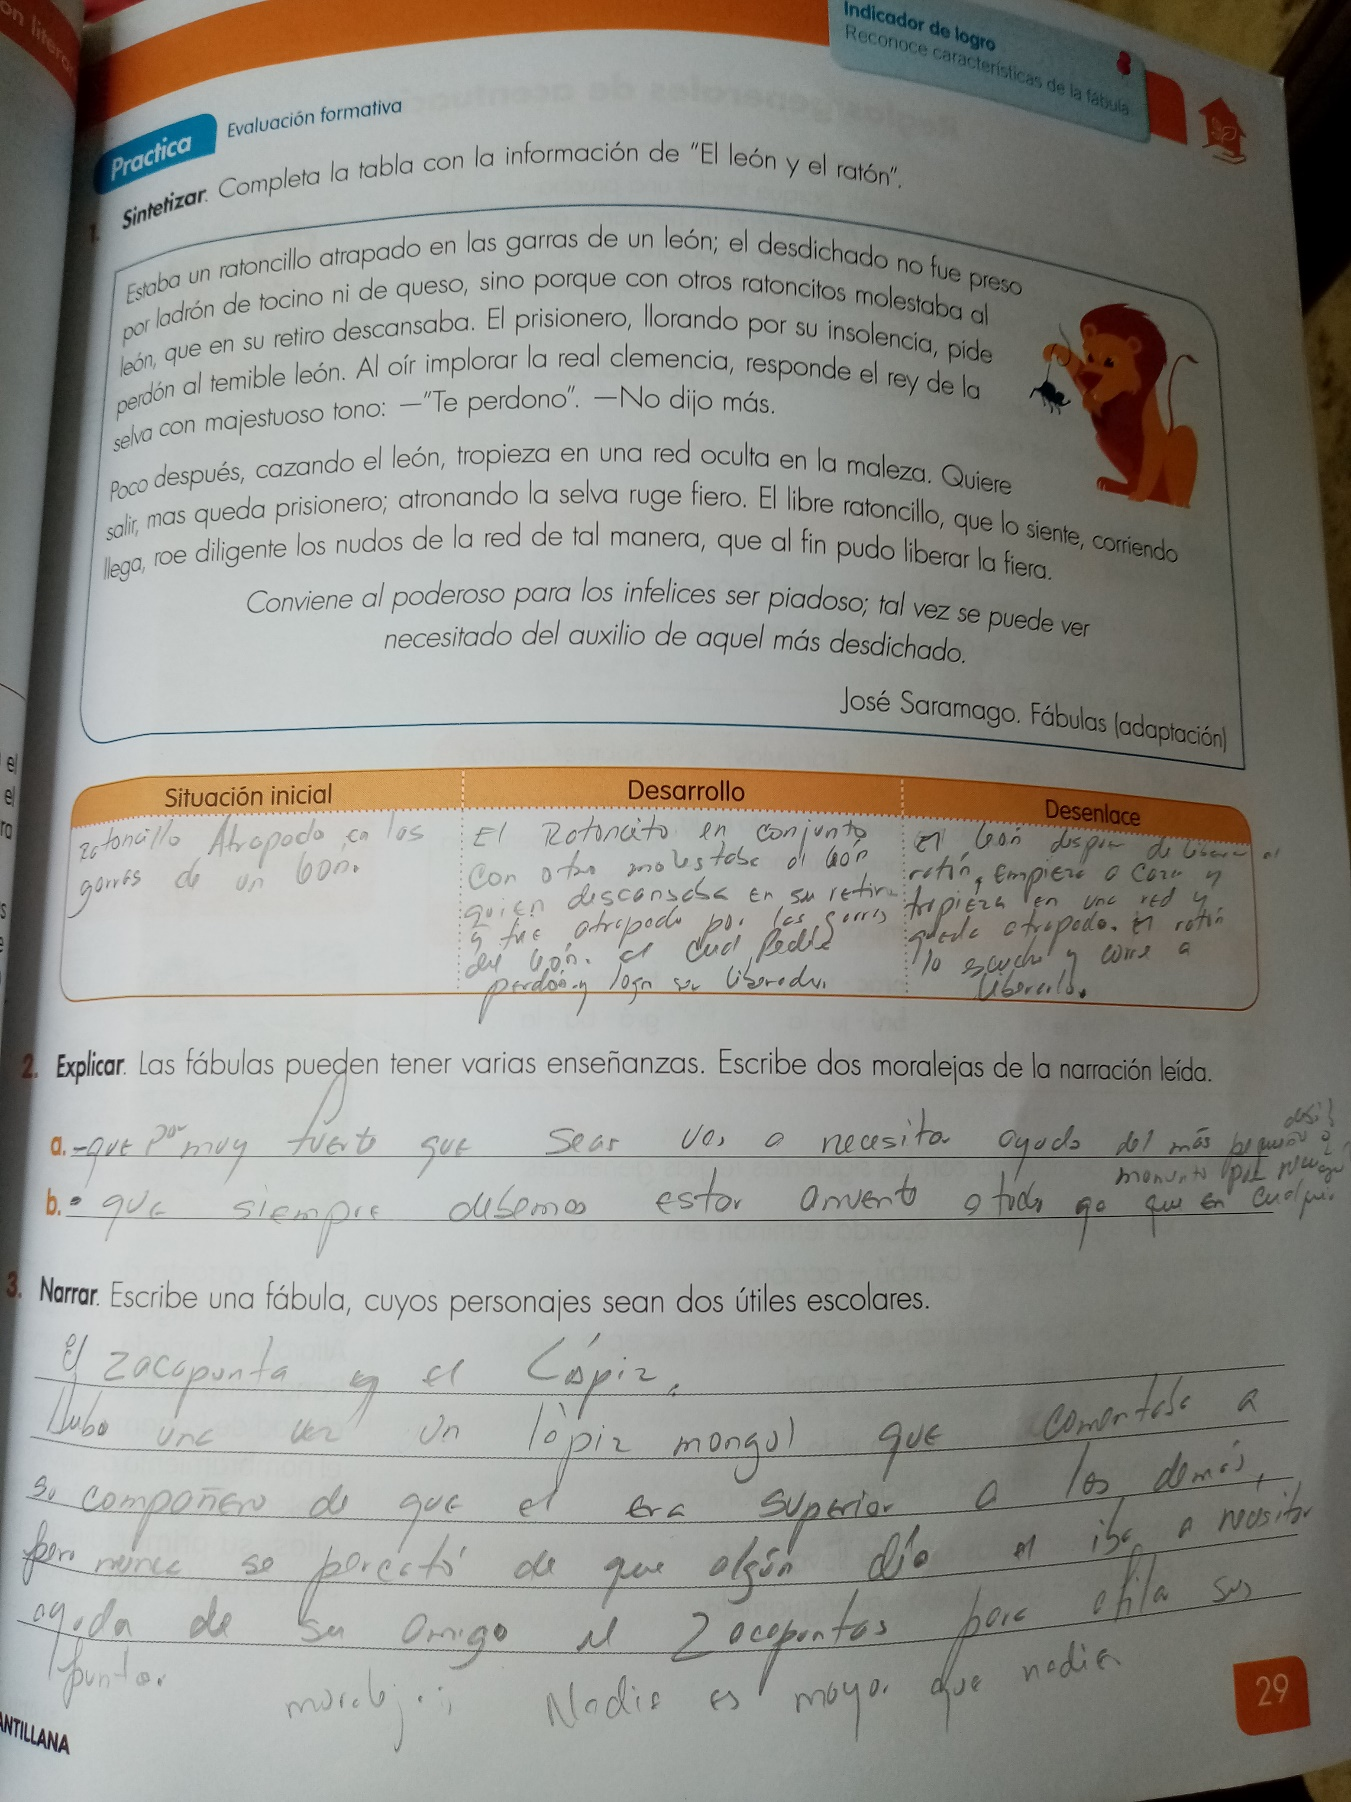 on litera
Indicador de logro
Reconoce características de la fábula
Practica
Evaluación formativa
1. Sintetizar. Completa la tabla con la información de "El león y el ratón".
Estaba un ratoncillo atrapado en las garras de un león; el desdichado no fue preso
por ladrón de tocino ni de queso, sino porque con otros ratoncitos molestaba al
león, que en su retiro descansaba. El prisionero, llorando por su insolencia, pide
perdón al temible león. Al oír implorar la real clemencia, responde el rey de la
selva con majestuoso tono: —"Te perdono". —No dijo más.
Poco después, cazando el león, tropieza en una red oculta en la maleza. Quiere
salir, mas queda prisionero; atronando la selva ruge fiero. El libre ratoncillo, que lo siente, corriendo
llega, roe diligente los nudos de la red de tal manera, que al fin pudo liberar la fiera.
Conviene al poderoso para los infelices ser piadoso; tal vez se puede ver
necesitado del auxilio de aquel más desdichado.
José Saramago. Fábulas (adaptación)
Situación inicial
ratoncillo Atrapado en las
garras de un león.
Desarrollo
El Ratoncito en conjunto
con otro molestaba al león
quien descansaba en su retiro
y fue atrapado por las garras
del león. el cual pedir
perdón y logra ser liberado.
Desenlace
El león despues de liberar al
ratón, empieza a cazar y
tropieza en una red y
queda atrapado. El ratón
lo escucha y corre a
liberarlo.
2. Explicar. Las fábulas pueden tener varias enseñanzas. Escribe dos moralejas de la narración leída.
a. -que por muy fuerte que seas vas a necesitar ayuda del más pequeño o
b. que siempre debemos estar a todo que en cualquier
momento
3. Narrar. Escribe una fábula, cuyos personajes sean dos útiles escolares.
El zacapunta y el Lápiz.
Hubo una vez un lápiz mongol que comentaba a
su compañero de que el era superior a los demás,
pero nunca se percató de que algún día el iba a necesitar
ayuda de su amigo el Zacapuntas para afila sus
puntas.
moraleja: Nadie es mayor que nadie
29
ANTILLANA